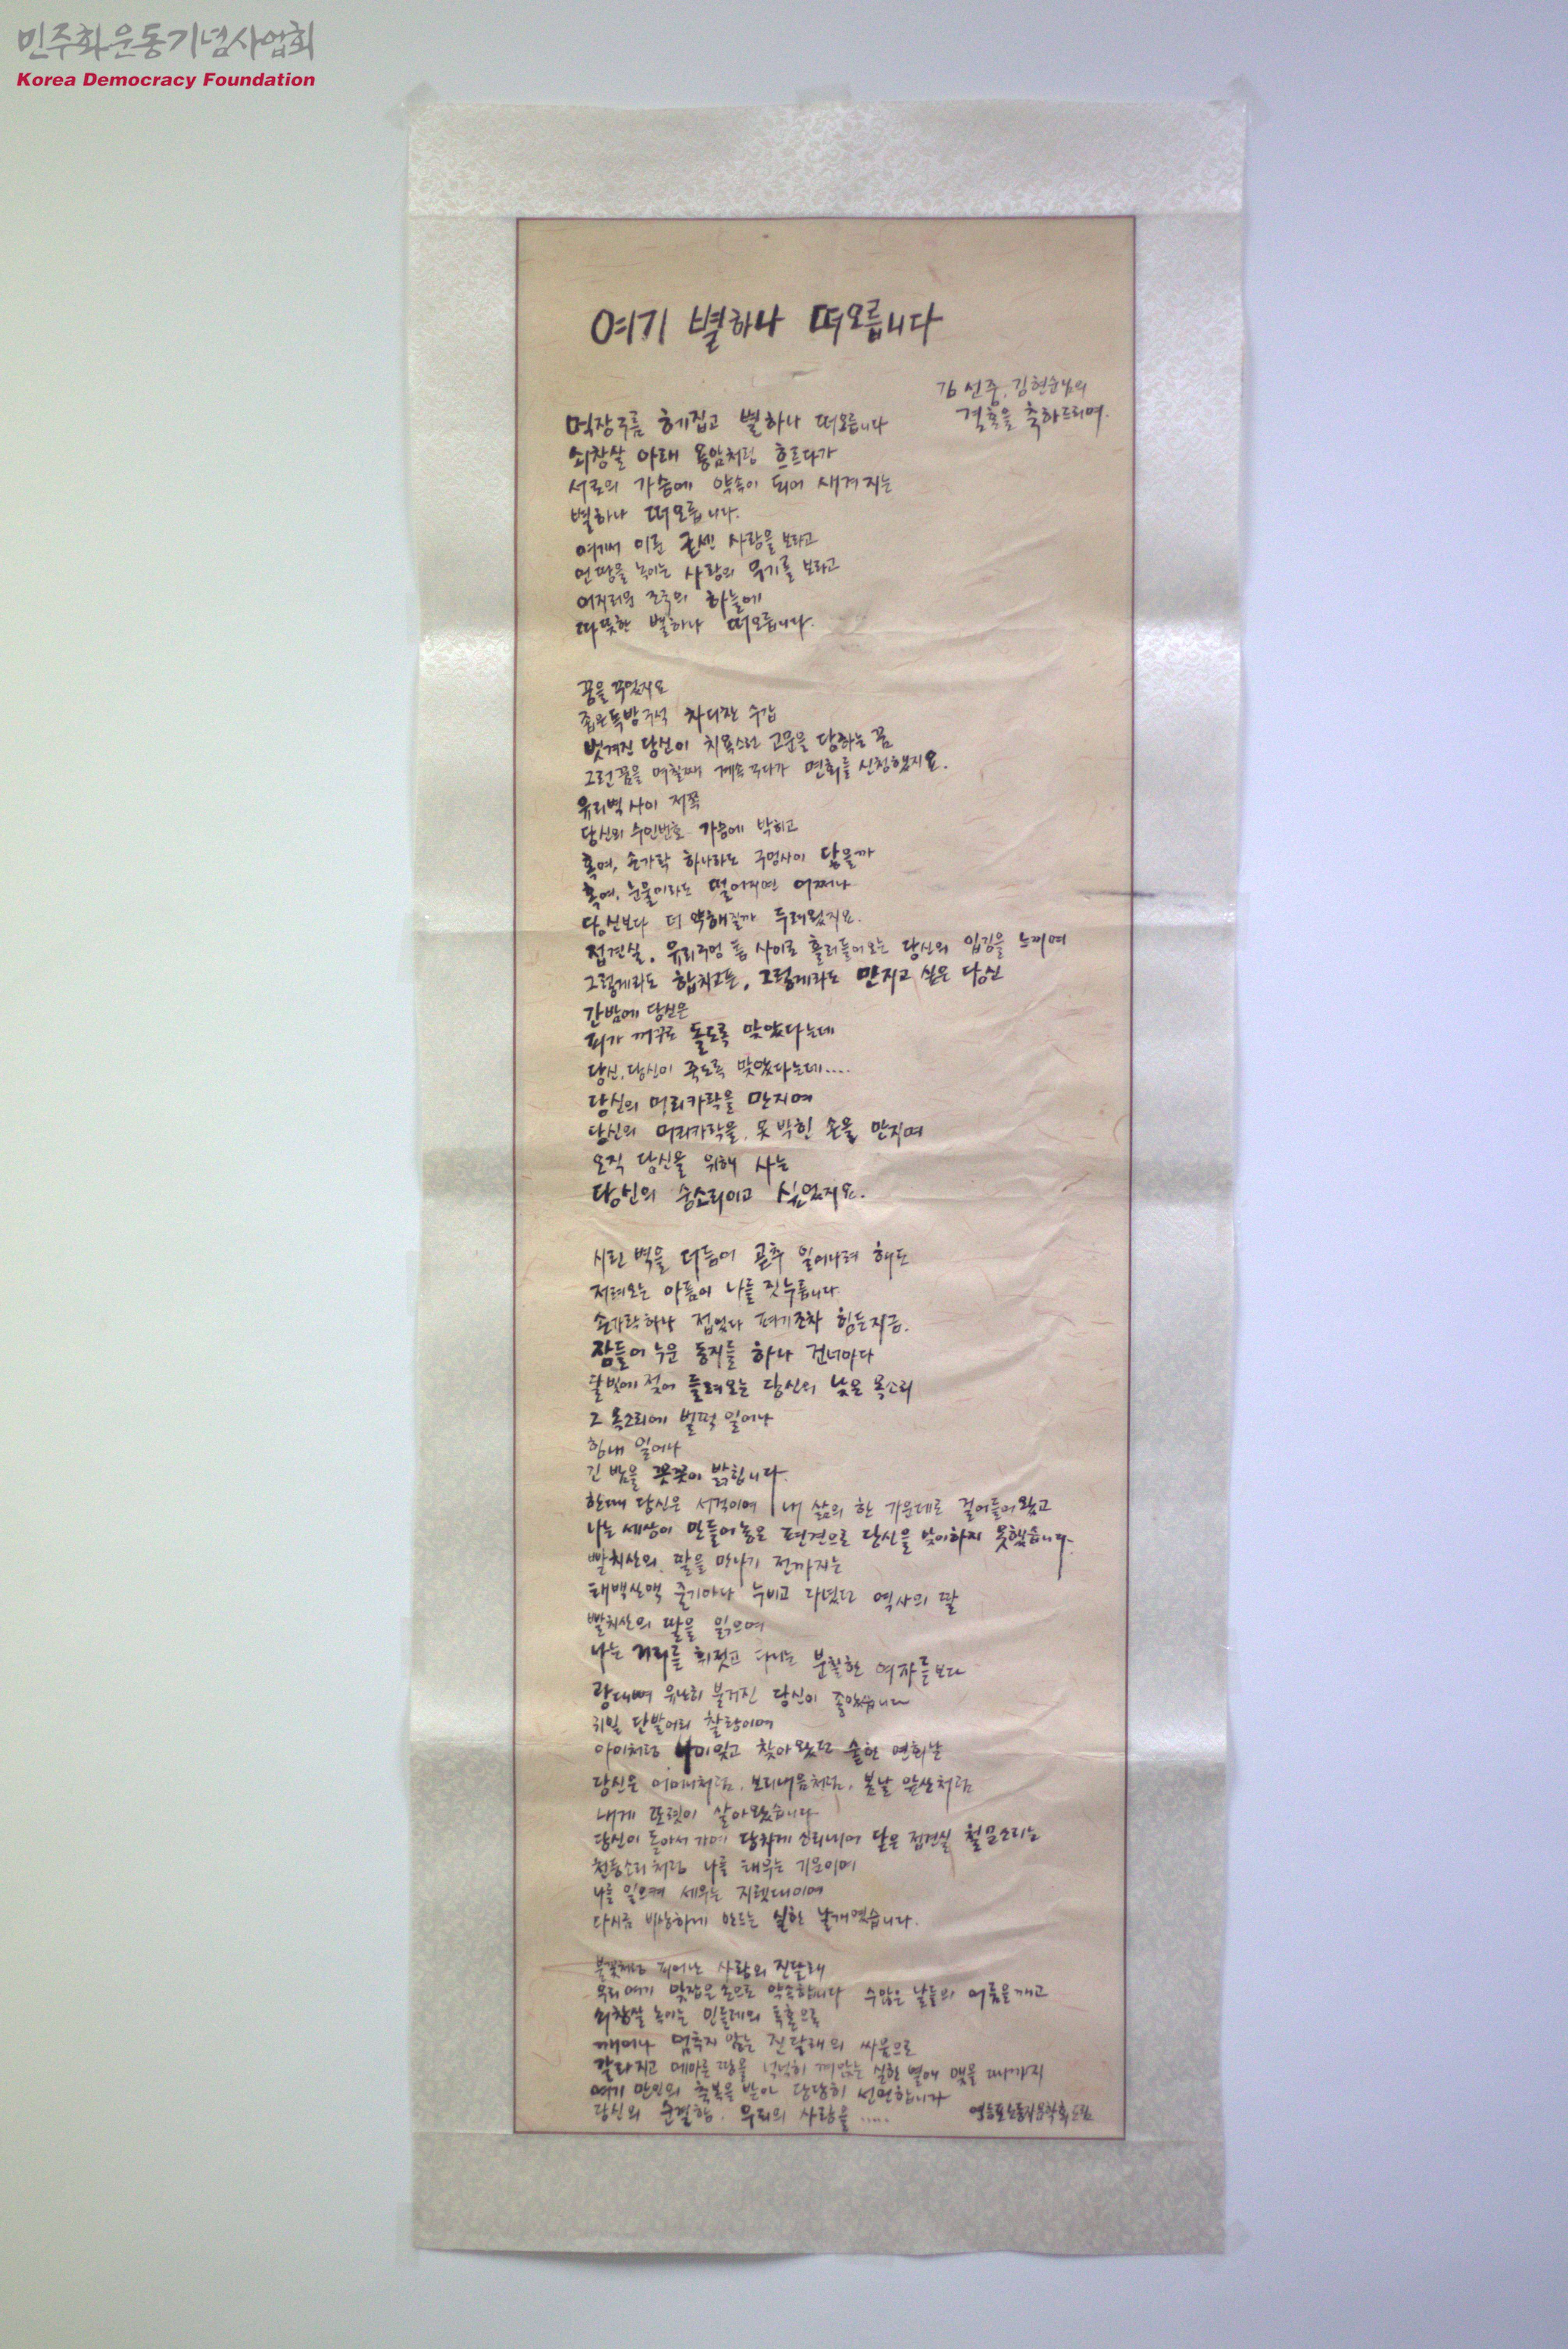 민주화운동기념사업회
Korea Democracy Foundation
여기 별하나 떠오릅니다
김선중, 김현순님의
결혼을 축하드리며.
먹장구름 헤집고 별하나 떠오릅니다
쇠창살 아래 용암처럼 흐르다가
서로의 가슴에 약속이 되어 새겨지는
별하나 떠오릅니다.
여기서 이룬 굳센 사랑을 보라고
언땅을 녹이는 사랑의 무기를 보라고
어지러운 조국의 하늘에
따뜻한 별하나 떠오릅니다.
꿈을 꾸었지요
좁은독방구석 차디찬 수갑
벗겨진 당신이 치욕스런 고문을 당하는 꿈
그런꿈을 며칠째 계속 꾸다가 면회를 신청했지요.
유리벽 사이 저쪽
당신의 수인번호 가슴에 박히고
혹여, 손가락 하나라도 구멍사이 닿을까
혹여, 눈물이라도 떨어지면 어쩌나
당신보다 더 약해질까 두려웠지요.
접견실, 유리구멍 틈 사이로 흘러들어오는 당신의 입김을 느끼며
그렇게라도 합치고픈, 그렇게라도 만지고 싶은 당신
간밤에 당신은
피가 꺼꾸로 돌도록 맞았다는데
당신, 당신이 죽도록 맞았다는데....
당신의 머리카락을 만지며
당신의 머리카락을, 못 박힌 손을 만지며
오직 당신을 위해 사는
당신의 숨소리이고 싶었지요.
시린 벽을 더듬어 곧추 일어나려 해도
저려오는 아픔이 나를 짓누릅니다.
손가락하나 접었다 펴기조차 힘든지금.
잠들어 누운 동지들 하나 건너마다
달빛에 젖어 들려오는 당신의 낮은 목소리
그 목소리에 벌떡 일어나
힘내 일어나
긴 밤을 꼿꼿이 밝힙니다.
한때 당신은 서걱이며 내 삶의 한 가운데로 걸어들어왔고
나는 세상이 만들어놓은 편견으로 당신을 맞이하지 못했습니다.
빨치산의 딸을 만나기 전까지는
태백산맥 줄기마다 누비고 다녔던 역사의 딸
빨치산의 딸을 읽으며
나는 거리를 휘젓고 다니는 분칠한 여자들보다
광대뼈 유난히 불거진 당신이 좋았습니다
귀밑 단발머리 찰랑이며
아이처럼 찾아왔던 숱한 면회날
당신은 어머니처럼, 보리내음처럼, 봄날 앞산처럼
내게 또렷이 살아왔습니다
당신이 돌아서 가며 당차게 소리내어 닫은 접견실 철문소리는
천둥소리처럼 나를 태우는 기운이며
나를 일으켜 세우는 지렛대이며
다시금 비상하게 만드는 실한 날개였습니다.
불꽃처럼 피어난 사랑의 진달래
우리 여기 맞잡은 손으로 약속합니다 수많은 날들의 어둠을 깨고
쇠창살 녹이는 민들레의 폭혼으로
깨어나 멈추지 않는 진달래의 싸움으로
갈라지고 메마른 땅을 넉넉히 껴안는 실한 열매 맺을 때까지
여기 만인의 축복을 받아 당당히 선언합니다
당신의 순결함, 우리의 사랑을 .....
영등포노동자문학회드림